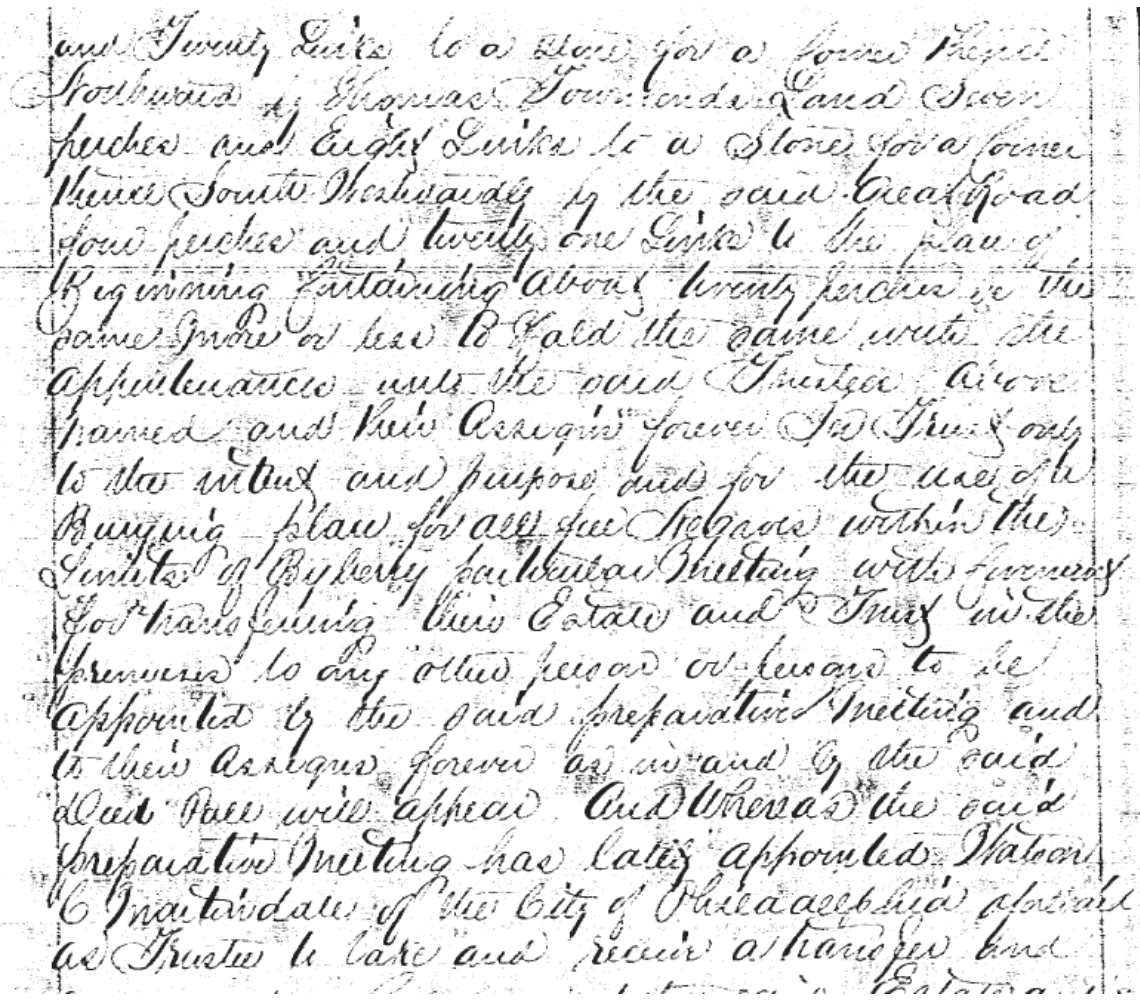 and Twenty Links to a Stone for a Corner thence
Northward by Thomas Townsends Land Seven
perches and Eight Links to a Stone for a Corner
thence South Westwardly by the said Great Road
four perches and twenty one Links to the place of
Beginning Containing About twenty perches be the
same more or less To Hold the same with the
Appurtenances unto the said Trustees Above
named and their Assigns forever In Trust only
to the intent and purpose and for the use of a
Burying place for all free Negroes within the
Limits of Byberry particular Meeting with
for transferring their Estate and Trust in the
premises to any other person or persons to be
Appointed by the said preparative Meeting and
to their Assigns forever as in and by the said
Deed Poll will appear And Whereas the said
preparative Meeting has lately appointed Watson
C Martindale of the City of Philadelphia aforesaid
as Trustee to take and receive a transfer and
Estate